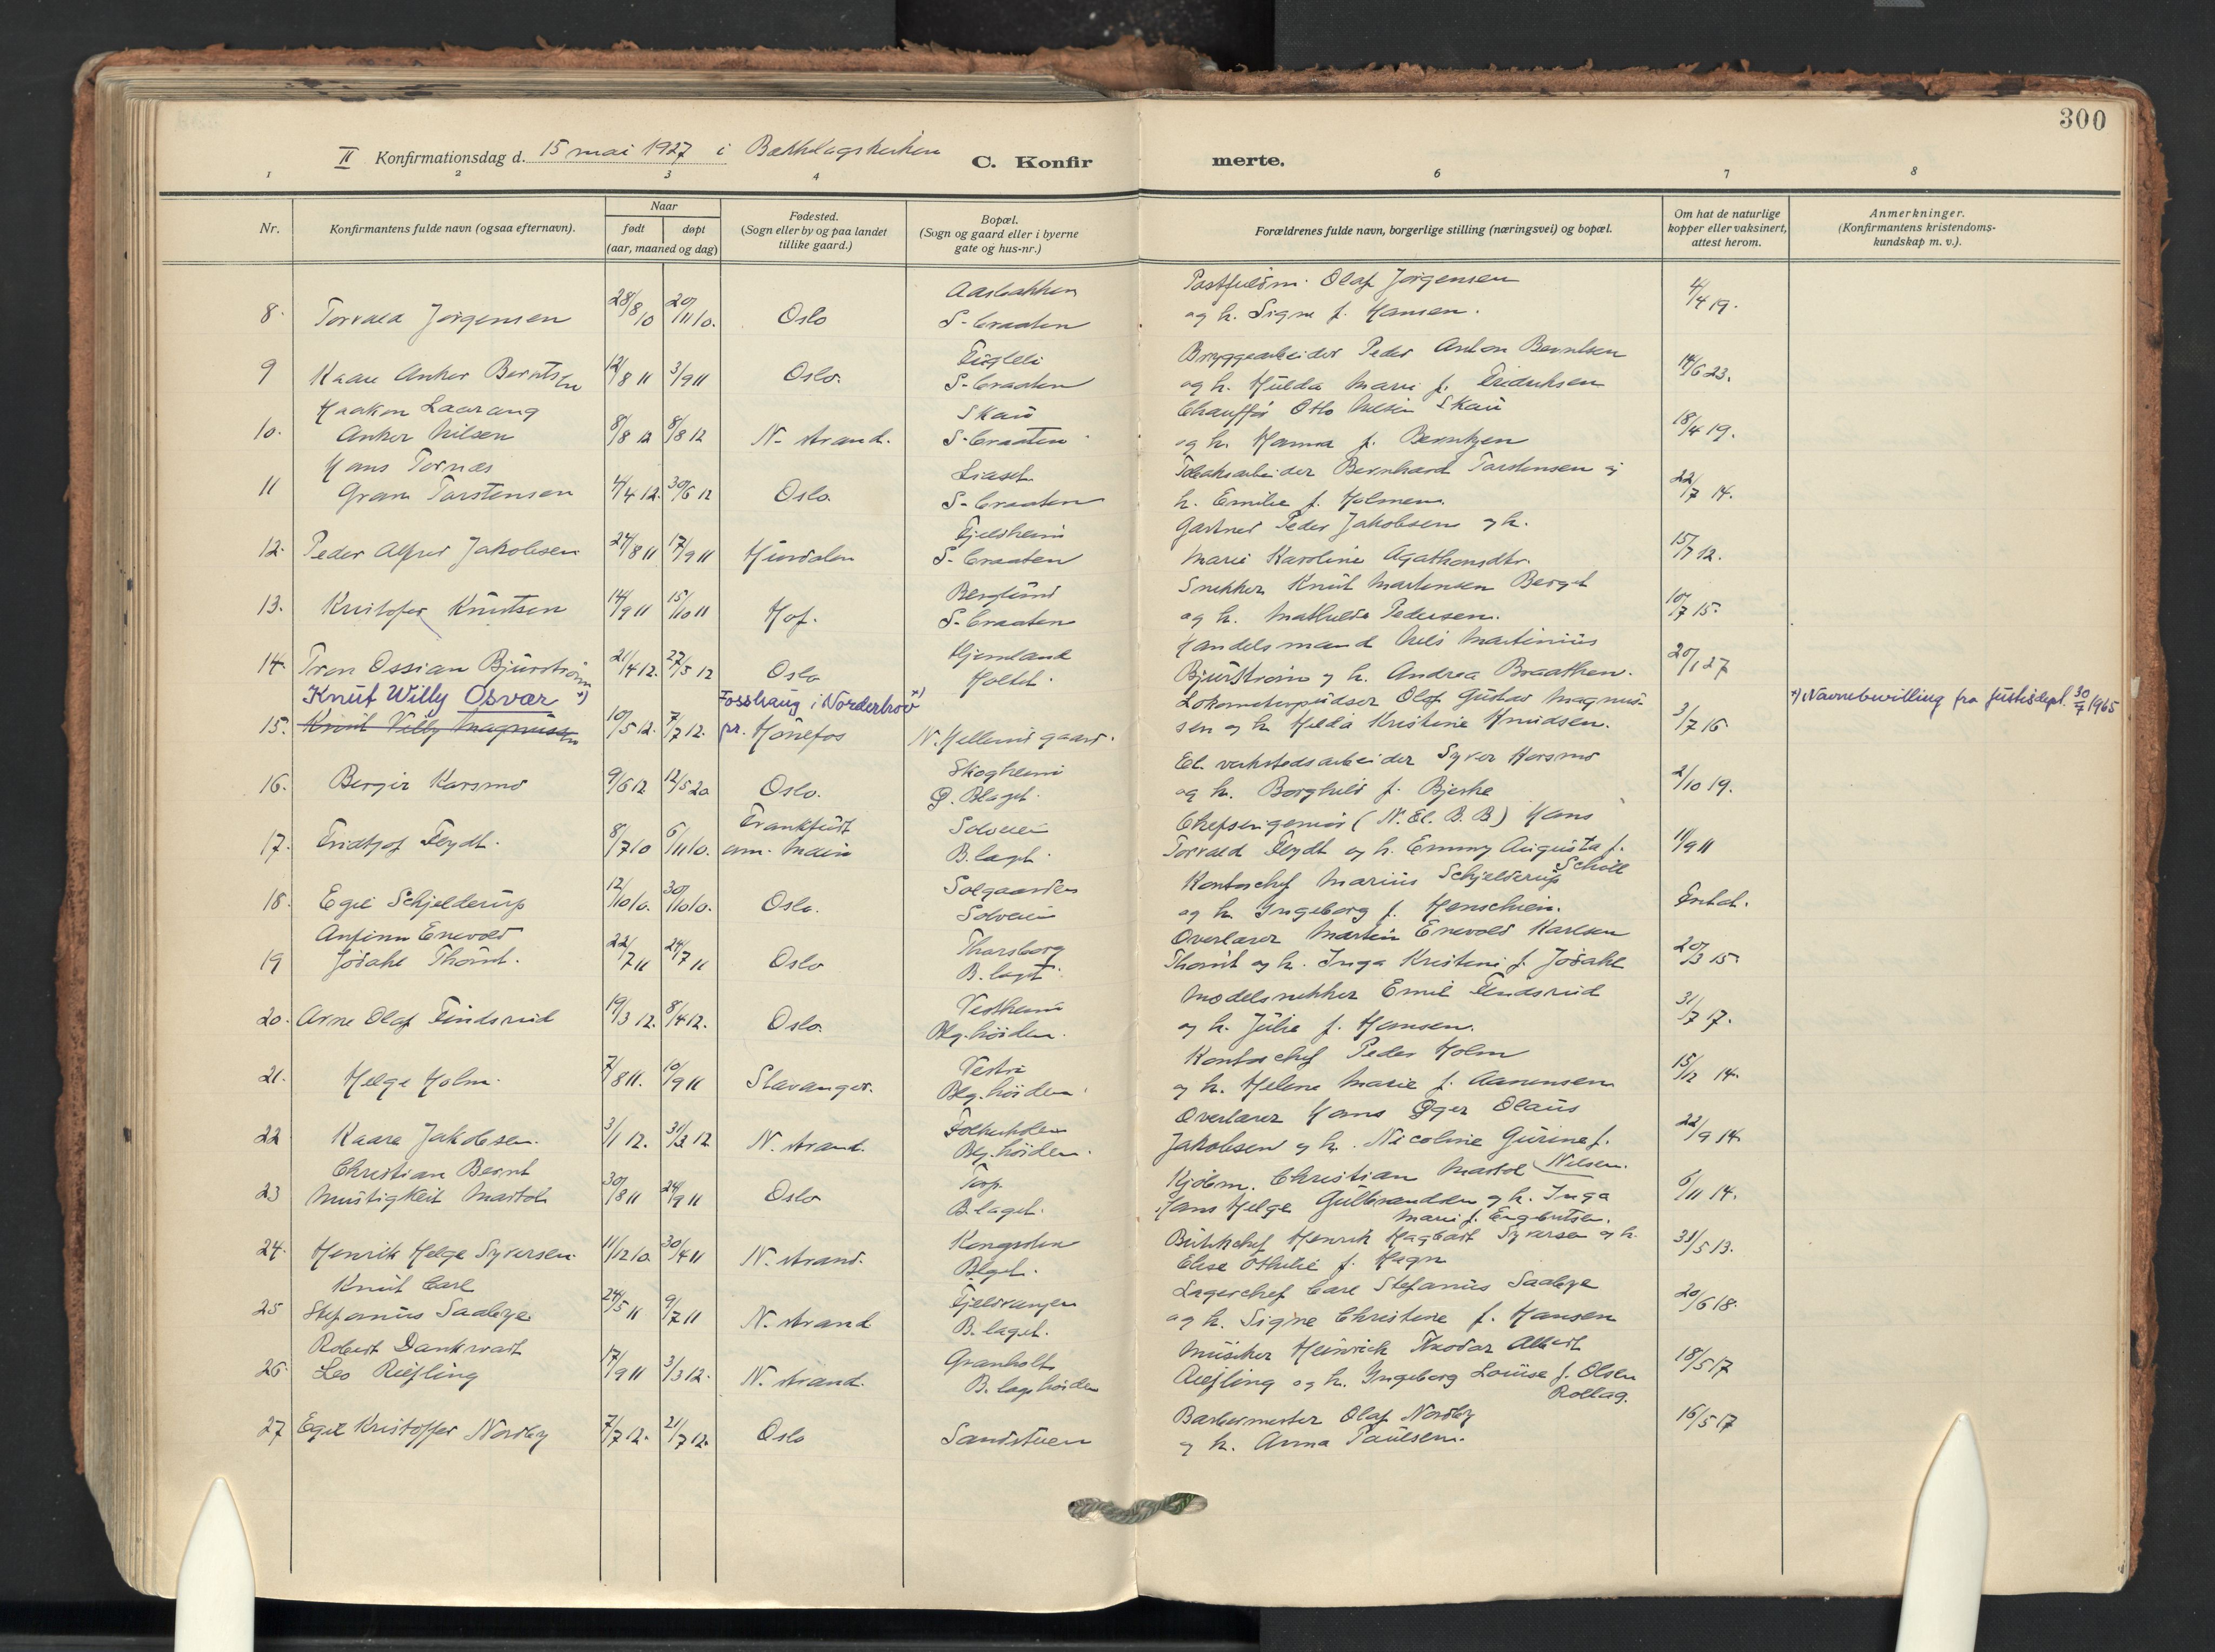 300
II Konfirmationsdag d. 15 mai 1927 i Bækkelagskirken
C. Konfirmerte.
1 2 3 4 6 7 8
Nr.
Konfirmantens fulde navn (ogsaa efternavn).
Naar
født døpt
(aar, maaned og dag)
Fødested.
(Sogn eller by og paa landet
tillike gaard.)
Bopæl.
(Sogn og gaard eller i byerne
gate og hus-nr.)
Forældrenes fulde navn, borgerlige stilling (næringsvei) og bopæl.
Om hat de naturlige
kopper eller vaksinert,
attest herom.
Anmerkninger.
(Konfirmantens kristendoms-
kundskap m. v.).
Aasbakken Postfuldm. Olaf Jørgensen
8. Torvald Jørgensen 28/8 10 20/11 10. Oslo S-braaten og h. Signe f. Hansen. 4/4 19.
Fuglli Bryggearbeider Peder Anton Berntsen
9 Kaare Anker Berntsen 12/8 11 3/9 11 Oslo. S-braaten og h. Hulda Marie f. Fredriksen 14/6 23.
Haakon Laurang Skau Chauffør Otto Nilsen Skau
10. Anker Nilsen 8/8 12 8/8 12 N-strand. S-braaten og h. Hanna f. Berntzen 18/4 19.
Hans Tornæs Liaset Tobaksarbeider Bernhard Torstensen og
11 Gram Torstensen 4/4 12. 30/6 12 Oslo S-braaten h. Emilie f. Holmen. 22/7 14.
Fjeldheim Gartner Peder Jakobsen og h.
12. Peder Alfred Jakobsen 24/8 11 17/9 11 Hurdalen S-braaten Marie Karoline Agathonsdtr. 15/7 12.
Berglund Snekker Knut Martensen Berget
13. Kristofer Knutsen 14/9 11 15/10 11 Hof. S-braaten og h. Mathilde Pedersen. 10/7 15.
Hjemland Handelsmand Nils Martinius
14. Tron Ossian Bjurstrøm 21/4 12. 27/5 12 Oslo Holtet. Bjurstrøm og h. Andrea Braathen. 20/1 27
Knut Willy Osvar *) Fosshaug i Norderhov *) Lokomotivpudser Olaf Gustav Magnus- *) Navnebevilling fra Justisdept. 30/7 1965
15. Knut Villy Magnussen 10/5 12. 7/7 12. pr. Hønefos N. Hellerud gaard. sen og h. Hilda Kristine Knudsen. 3/7 16
Skogheim El. verkstedsarbeider Syver Korsmo
16. Berger Korsmo 9/6 12 12/5 20 Oslo. G. Blaget. og h. Borghild f. Bjerke 2/10 19.
Frankfurt Solveien Chefsingeniør (N. El. B. B) Hans
17. Fridtjof Fleydt. 8/7 10 6/11 10. am. Main B.laget. Torvald Fleydt og h. Emmy Augusta f. Scholl 11/9 11
Solgaarden Kontorchef Marius Schjelderup
18. Egil Schjelderup 12/10 10. 30/10 10. Oslo. Solveien og h. Ingeborg f. Henschien. Fritd.
Anfinn Enevold Thorsborg Overlærer Martin Enevold Karlsen
19 Jødahl Thomt. 22/7 11 24/7 11 Oslo B. laget. Thomt og h. Inga Kristine f. Jødahl 20/3 15
Vestheim Modelsnekker Emil Findsrud
20. Arne Olaf Findsrud 19/3 12. 8/4 12. Oslo. Blg.høiden. og h. Julie f. Hansen. 31/7 17.
Vestre Kontorchef Peder Holm
21. Helge Holm. 7/8 11. 10/9 11 Stavanger. Blg.høiden. og h. Helene Marie f. Aanensen 15/12 14.
Overlærer Hans Olaus
22 Kaare Jakobsen. 3/1 12. 31/3 12 N. strand. Blg.høiden. Jakobsen og h. Nicoline Gurine f. Nilsen. 22/9 14
Christian Bernt Torp. Kjøbm. Christian Martol
23 Martol 30/8 11 24/9 11 Oslo B.laget. Hans Helge Gulbrandsen og h. Inga Marie f. Engbretsen. 6/11 14.
Kongsolen Butikchef Henrik Hagbart Syversen og h.
24. Henrik Helge Syversen 11/12 10. 30/4 11 N. strand. Blaget. Elise Othilie f. Hagn 31/5 13.
Knut Carl Fjeldvangen Lagerchef Carl Stefanus Saabye
25 Stefanus Saabye 24/5 11 9/7 11 N. strand B. laget. og h. Signe Christine f. Hansen 20/6 18.
Robert Dankwart Granholt Musiker Heinrich Theodor Albert
26. Leo Riefling 17/9 11 3/3 12. N. strand. B. lagshøiden Riefling og h. Ingeborg Louise f. Olsen Rollag. 18/5 17
Barbermester Olaf Nordby
27 Egil Kristoffer Nordby 7/7 12. 21/7 12. Oslo Sandstuen og h. Anna Paulsen. 16/5 17